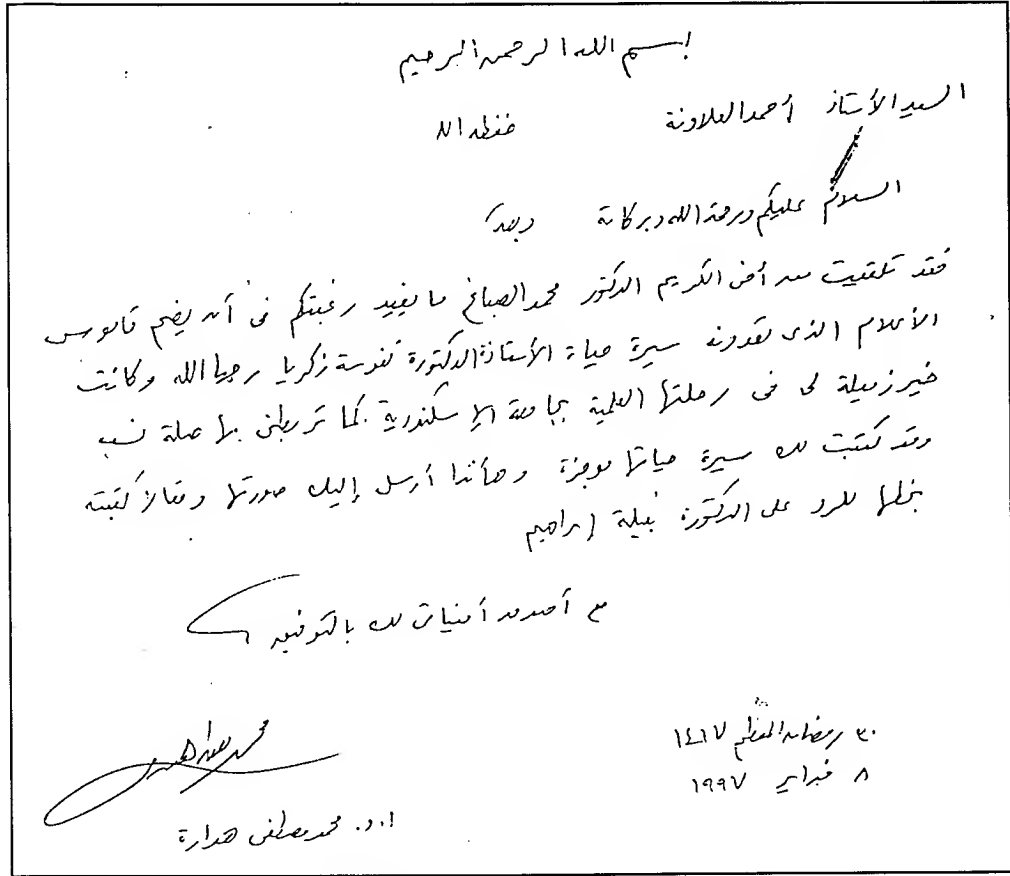 بسم الله الرحمن الرحيم
السيد الأستاذ أحمد العلاونة حفظه الله
السلام عليكم ورحمة الله وبركاته وبعد،
فقد تلقيت من أخى الكريم الدكتور محمد الصباغ ما يفيد رغبتكم فى أن يضم قاموس
الأعلام الذى تعدونه سيرة حياة الأستاذة الدكتورة نفوسة زكريا رحمها الله وكانت
خير زميلة لى فى رحلتها العلمية بجامعة الإسكندرية كما تربطنى بها صلة نسب
وقد كتبت لك سيرة حياتها موجزة وهأنذا أرسل إليك صورتها ومقالا كتبته
بخطها للرد على الدكتورة نبيلة إبراهيم
مع أصدق أمنياتى لك بالتوفيق
٣٠ رمضان المعظم ١٤١٧
٨ فبراير ١٩٩٧
محمد مصطفى هدارة
ا.د. محمد مصطفى هدارة